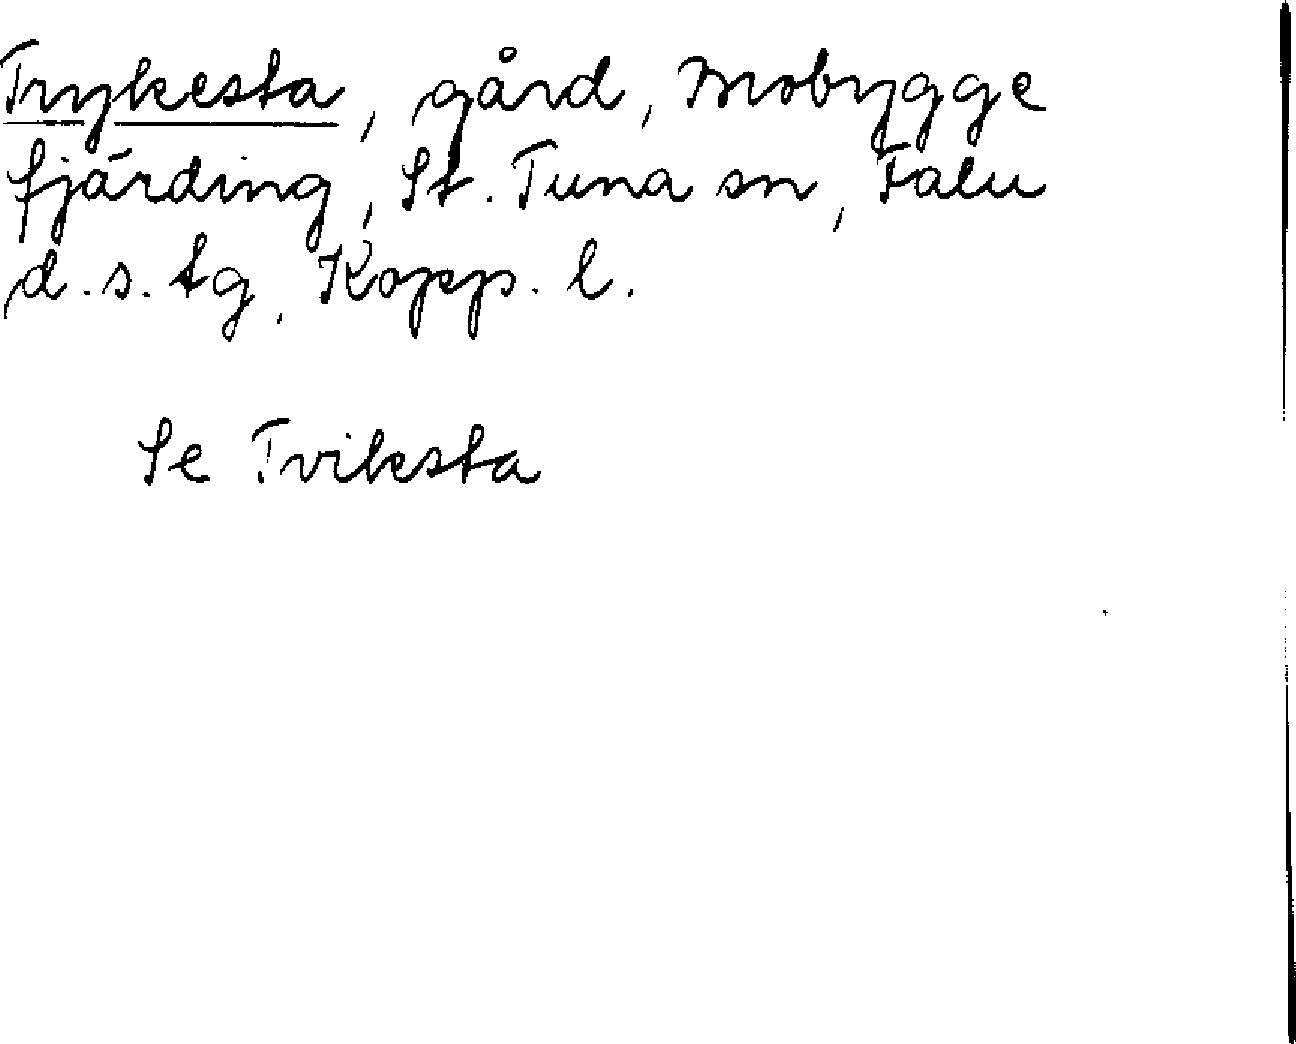 Trykesta, gård, Mobygge
fjärding, St. Tuna sn, Falu
d.s. tg, Kopp. l.
Se Tviksta